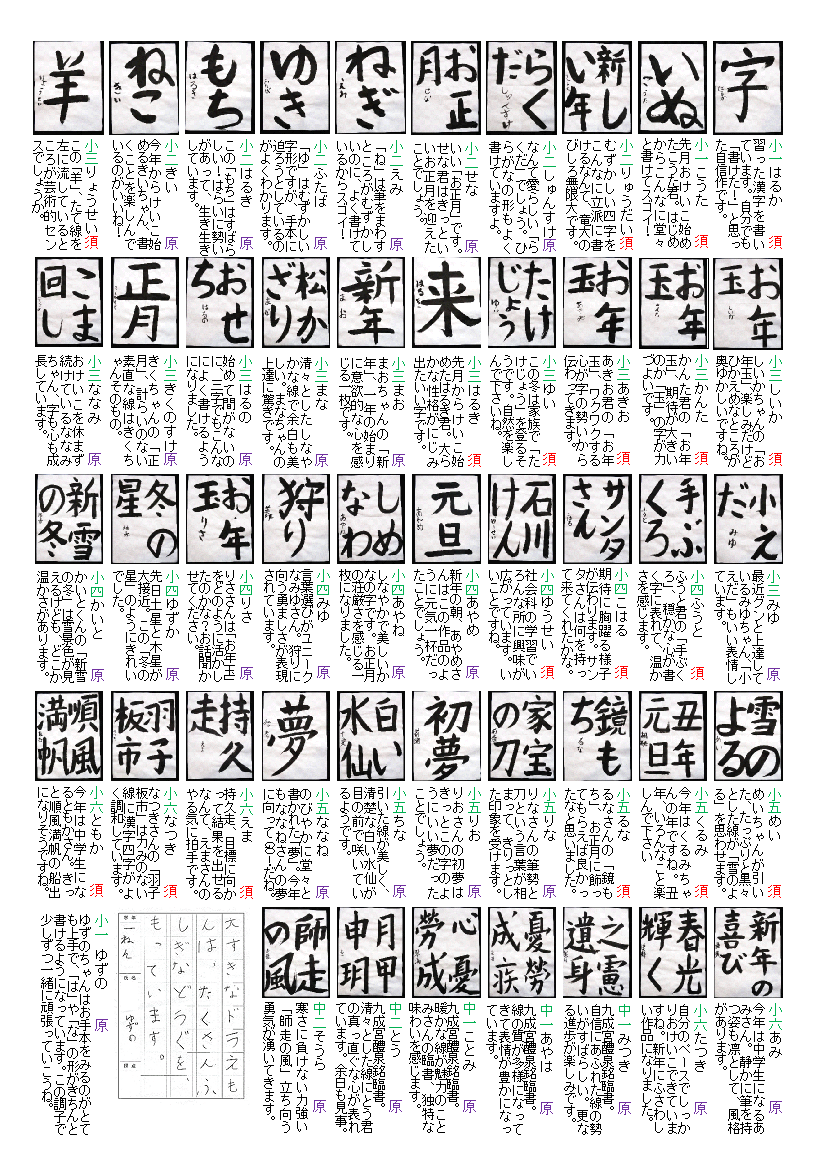 字
小一はるか 須
習った漢字を書い
ています。自分でも
「書けた！」と思っ
た自信作です。
いぬ
小一こうた 須
先月おけいこ始め
たこうた君。はじめ
からこんなに堂々
と書けてスゴイ！
新し
い年
小二りゅうだい 須
むずかしい四字を
こんなに立派に書
けるなんて、竜大の
びしろ無限大です。
らく
だ
小二しゅんすけ 原
なんて愛らしい「ら
くだ」でしょう。ひ
らがなの形もよく
書けていますよ。
お正
月
小二せな 原
いい「お正月」です。
せな君はきっとい
いお正月を迎えた
ことでしょう。
ねぎ
小二えみ 原
「ね」は筆をまわす
ところがむずかし
いのに、よく書けて
いるからスゴイ！
ゆき
小二ふたば 原
「ゆ」はむずかしい
字形ですが、手本に
迫ろうとしているの
がよくわかります。
もち
小二はるき 原
この「もち」はすばら
しい！はらいに勢い
があって、生き生き
しています。
ねこ
小二きい 原
今年からけいこ始
めるきいちゃん、書
くことを楽しんで
いるのがいいね！
羊
小三りょうせい 須
この「羊」、たて線を
左に流していると
ころが芸術的セン
スでしょうか。
お年
玉
小三しいか 須
しいかちゃんの「お
年玉」楽しみだけど
ひかえめなところが
奥ゆかしいですね。
お年
玉
小三かんた 須
かんた君の「お年
玉」、期待が大きい
のか「玉」の字が力
づよいです。
お年
玉
小三あきお 須
あきお君の「お年
玉」、ワクワクする
心が字の勢いから
伝わってきます。
たけ
じょう
小三ゆい 須
この冬は家族で「た
けじょう」を登るそ
うです。自然を楽し
んで下さいね。
来
小三はるき 須
先月からけいこ始
めたはるき君。大ら
かな性格がにじみ
出たいい字です。
新年
小三まお 原
まおちゃんの「新
年」、一年の始まり
に意欲的な心を感
じる一枚です。
松か
ざり
小三まな 原
清々としたしなや
かな線で余白も美
しい。まなちゃんの
上達に驚きです。
おせ
ち
小三はるの 原
始めて間がないの
に、三字でもこんな
によく書けるよう
になりました。
正月
小三きくのすけ 原
きくちゃんの「正
月」、計らいのない
素直な線はきくち
ゃんそのもの。
こま
回し
小三ななみ 原
おけいこを休まず
続けているななみ
ちゃん、字も心も成
長しています。
小え
だ
小三みゆ 原
最近グンと上達して
いるみゆちゃん。「小
えだ」もいい表情し
てます。
手ぶ
くろ
小四ふうと 須
ふうと君の「手ぶく
ろ」、穏かな心が書
く字に表れて、温か
さを感じます。
サンタ
さん
小四こはる 須
期待に胸躍る様子
が伝わります。サン
タさんは何を持っ
て来てくれたかな。
石川
けん
小四ゆうせい 須
社会科の学習でい
ろんな所に興味が
広がっています。い
いことですね。
元旦
小四あやめ 原
新年の朝、あやめさ
んはこの作品のよ
うに元気一杯だっ
たことでしょう。
しめ
なわ
小四あやね 原
しなやかで美しいか
なの字です。お正月
の荘厳さを感じる一
枚になりました。
狩り
小四みゆ 原
言葉選びがユニーク
なみゆさん。狩りに
向う勇ましさが表現
されています。
お年
玉
小四りさ 原
りささんは「お年玉」
をどのように活かし
たのかな？お話聞か
せてください。
冬の
星
小四ゆずか 原
先日土星と木星が
大接近。この「冬の
星」のようにきれい
でした。
新雪
の冬
小四かいと 原
かいとくんの「新雪
の冬」は雪景色が見
えるけども、どこか
温かさがあります。
雪の
よる
小五めい 須
めいちゃんが引い
た、たっぷりと黒々
とした線が「雪のよ
る」を思わせます。
丑年
元旦
小五くるみ 須
今年はくるみちゃ
んの年ですね。丑
年、いろんなこと楽
しんで下さい
鏡も
ち
小五るな 須
るなさんの「鏡も
ち」、お正月に飾っ
てもらえば良かっ
たなと思いました。
家宝
の刀
小五りな 原
りなさんの筆勢と
刀という言葉が相
まって、きりっとし
た印象を受けます。
初夢
小五りお 原
りおさんの初夢は
きっとこの字のよ
うにいい夢だった
ことでしょう。
白い
水仙
小五ちな 原
引いた線が美しく、
清楚な白い水仙が
目の前で咲いてい
るようです。
夢
小五ななね 原
のびやかに堂々と
書かれた「夢」。今年
もななねさんの夢
に向ってGo！だね。
持久
走
小六えま 須
持久走、目標に向か
って結果を出せる
なんて、えまさんの
やる気に拍手です。
羽子
板市
小六なつき 須
なつきさんの「羽子
板市」は力みのない
線に漢字四字がよ
く調和しています。
順風
満帆
小六ともか 須
今年は中学生にな
るともかさん。きっ
と順風満帆の船出
になりそうですね。
新年の
喜び
小六あみ 原
今年は中学生になるあ
みさん。静かに筆を持
つ姿も凛として、風格
があります。
春光
輝く
小六たつき 原
自分のペースでしっか
りおけいこできていま
すね。新年にふさわし
い作品になりました。
之憲
遺身
中一みつき 原
九成宮醴泉銘臨書。
自信にあふれた線の勢
いがすばらしい。更な
る進歩が楽しみです。
憂勞
成疾
中一あやは 原
九成宮醴泉銘臨書。
線の質が多様になって
きて表情が豊かになっ
ています。
心憂
勞成
中一ことみ 原
九成宮醴泉銘臨書。
暖かな線が魅力のこと
みさんの臨書、独特な
味わいを感じます。
月甲
申玥
中二とう 原
九成宮醴泉銘臨書。
清々とした線にとう君
の真っ直ぐな心が表れ
ています。余白も見事。
師走
の風
中二そうら 原
寒さに負けない力強い
「師走の風」立ち向う
勇気が湧いてきます。
大すきなドラえも
んは、たくさんふ
しぎなどうぐを、
もっています。
一ねん
ゆずの
小一 ゆずの 原
ゆずのちゃんはお手本をみるのがとて
も上手で、「は」や「な」の形がきちんと
書けるようになっています。この調子で
少しずつ一緒に頑張っていこうね。